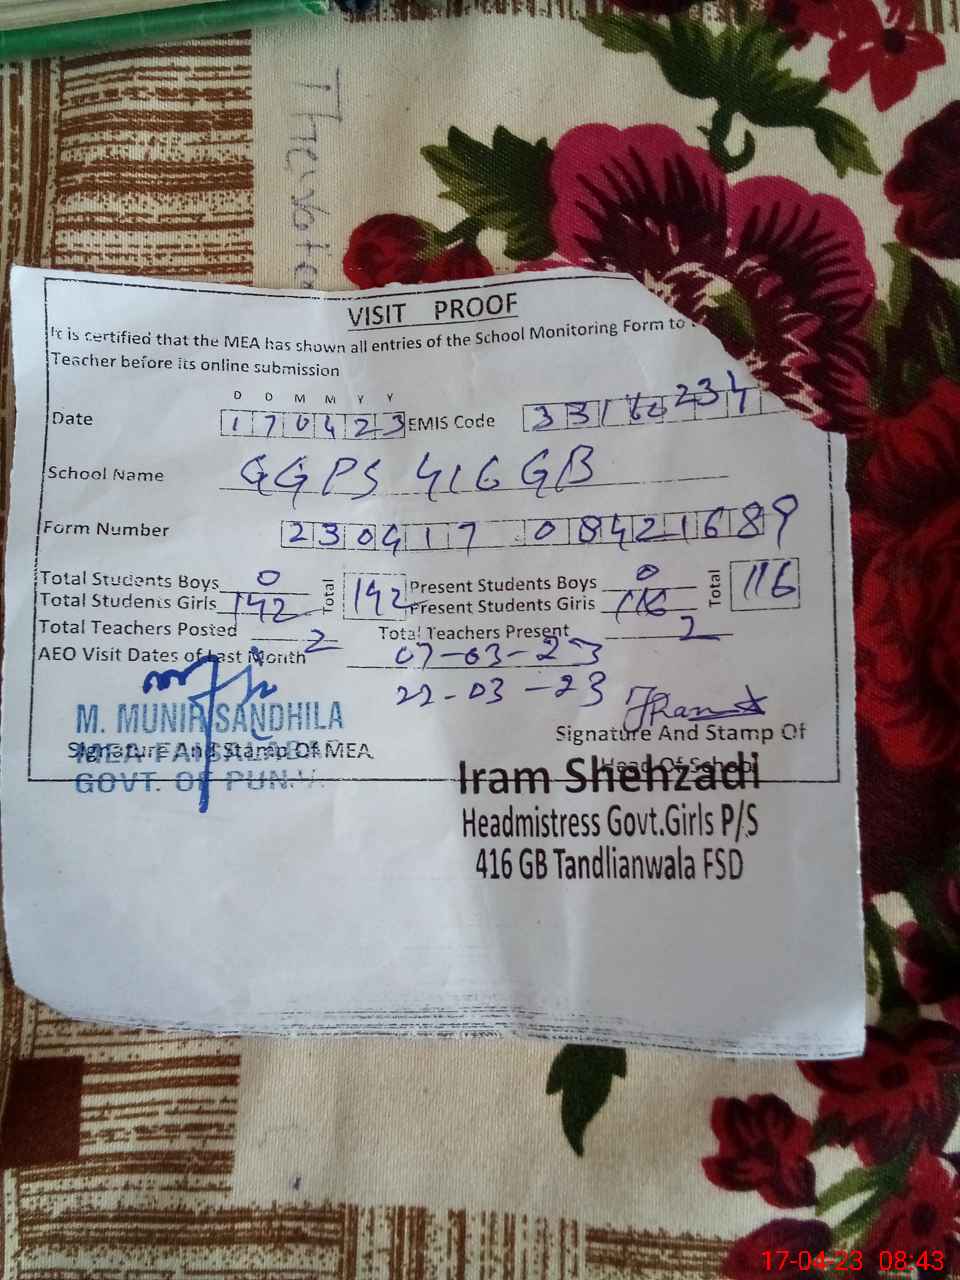 VISIT PROOF
It is certified that the MEA has shown all entries of the School Monitoring Form to
Teacher before its online submission
D D M M Y Y
Date 170423 EMIS Code 331 234
School Name GGPS 416 GB
Form Number 230417 08421689
Total Students Boys 0 Total 142 Present Students Boys 0 Total 116
Total Students Girls 142 Present Students Girls 116
Total Teachers Posted 2 Total Teachers Present 2
AEO Visit Dates of Last Month 07-03-23
22-03-23
M. MUNIR SANDHILA
Signature And Stamp Of MEA
MEA FAISALABAD
GOVT. OF PUNJAB
Signature And Stamp Of
Head Of School
Iram Shehzadi
Headmistress Govt.Girls P/S
416 GB Tandlianwala FSD
17-04-23 08:43